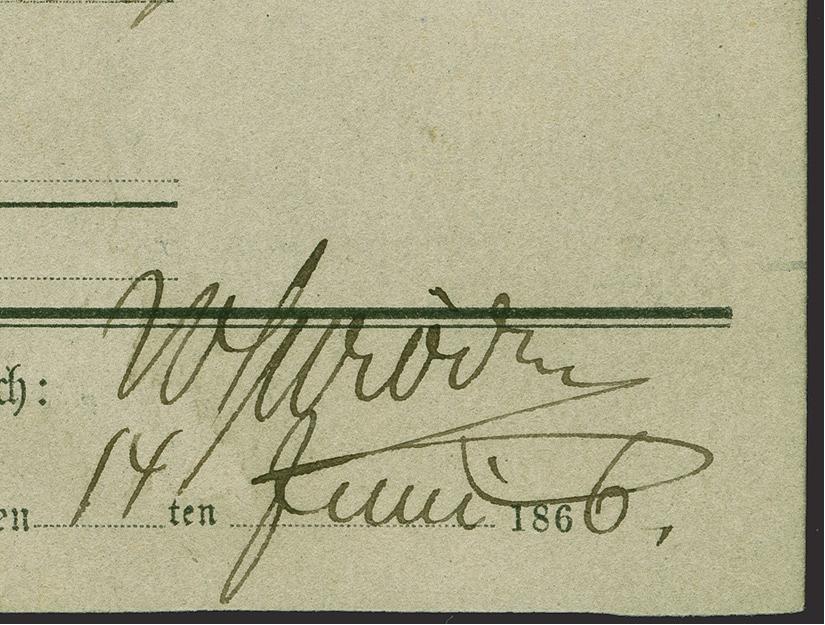 ch:
en 14 ten Juni 1866,